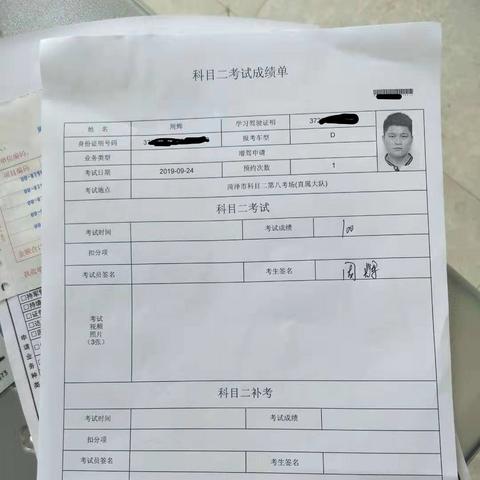 科目二考试成绩单
姓 名 周辉 学习驾驶证明 372
身份证明号码 37 报考车型 D
业务类型 增驾申请
考试日期 2019-09-24 预约次数 1
考试地点 菏泽市科目二第八考场(直属大队)
科目二考试
考试时间 考试成绩 100
扣分项
考试员签名 考生签名 周辉
考试
视频
照片
(3张)
科目二补考
考试时间 考试成绩
扣分项
考试员签名 考生签名